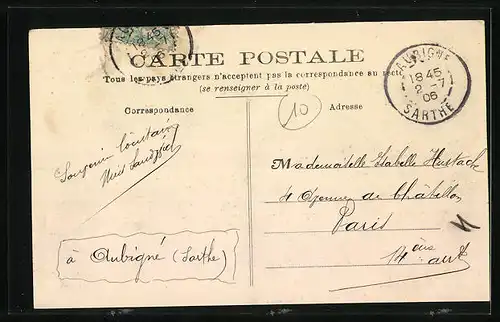 CARTE POSTALE
Tous les pays étrangers n'acceptent pas la correspondance au recto
(se renseigner à la poste)
Correspondance
Adresse
AUBIGNÉ
18 45
2-7
06
SARTHE
10
Souvenir
à Aubigné (Sarthe)
Mademoiselle Isabelle Hustache
4 Avenue de Châtillon
Paris
14